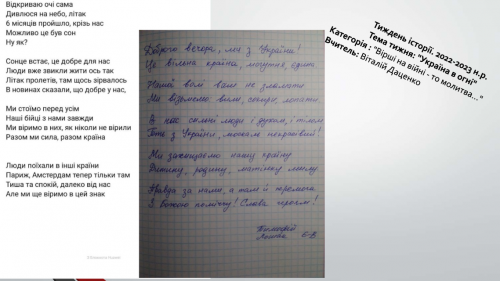 Відкриваю очі сама
Дивлюся на небо, літак
6 місяців пройшло, крізь нас
Можливо це був сон
Ну як?
Сонце встає, це добре для нас
Люди вже звикли жити ось так
Літак пролетів, там щось зірвалось
В новинах сказали, що добре у нас,
Ми стоїмо перед усім
Наші бійці з нами завжди
Ми віримо в них, як ніколи не вірили
Разом ми сила, разом країна
Люди поїхали в інші країни
Париж, Амстердам тепер тільки там
Тиша та спокій, далеко від нас
Але ми ще віримо в цей знак
Доброго вечора, ми з України!
Це вільна країна, могутня, єдина
Нашої вам не зламати
Ми візьмемо вили, сокири, лопати
В нас сильні люди і духом, і тілом
Ми захищаємо нашу країну
Батьків, родину, матінку милу
Правда за нами, а там й перемога
І вогонь Слава героям!
Тимофій
6-В
Тиждень історії. 2022-2023 н.р.
Тема тижня: "Україна в огні"
Категорія : "Вірші на війні - то молитва..."
Вчитель: Віталій Даценко